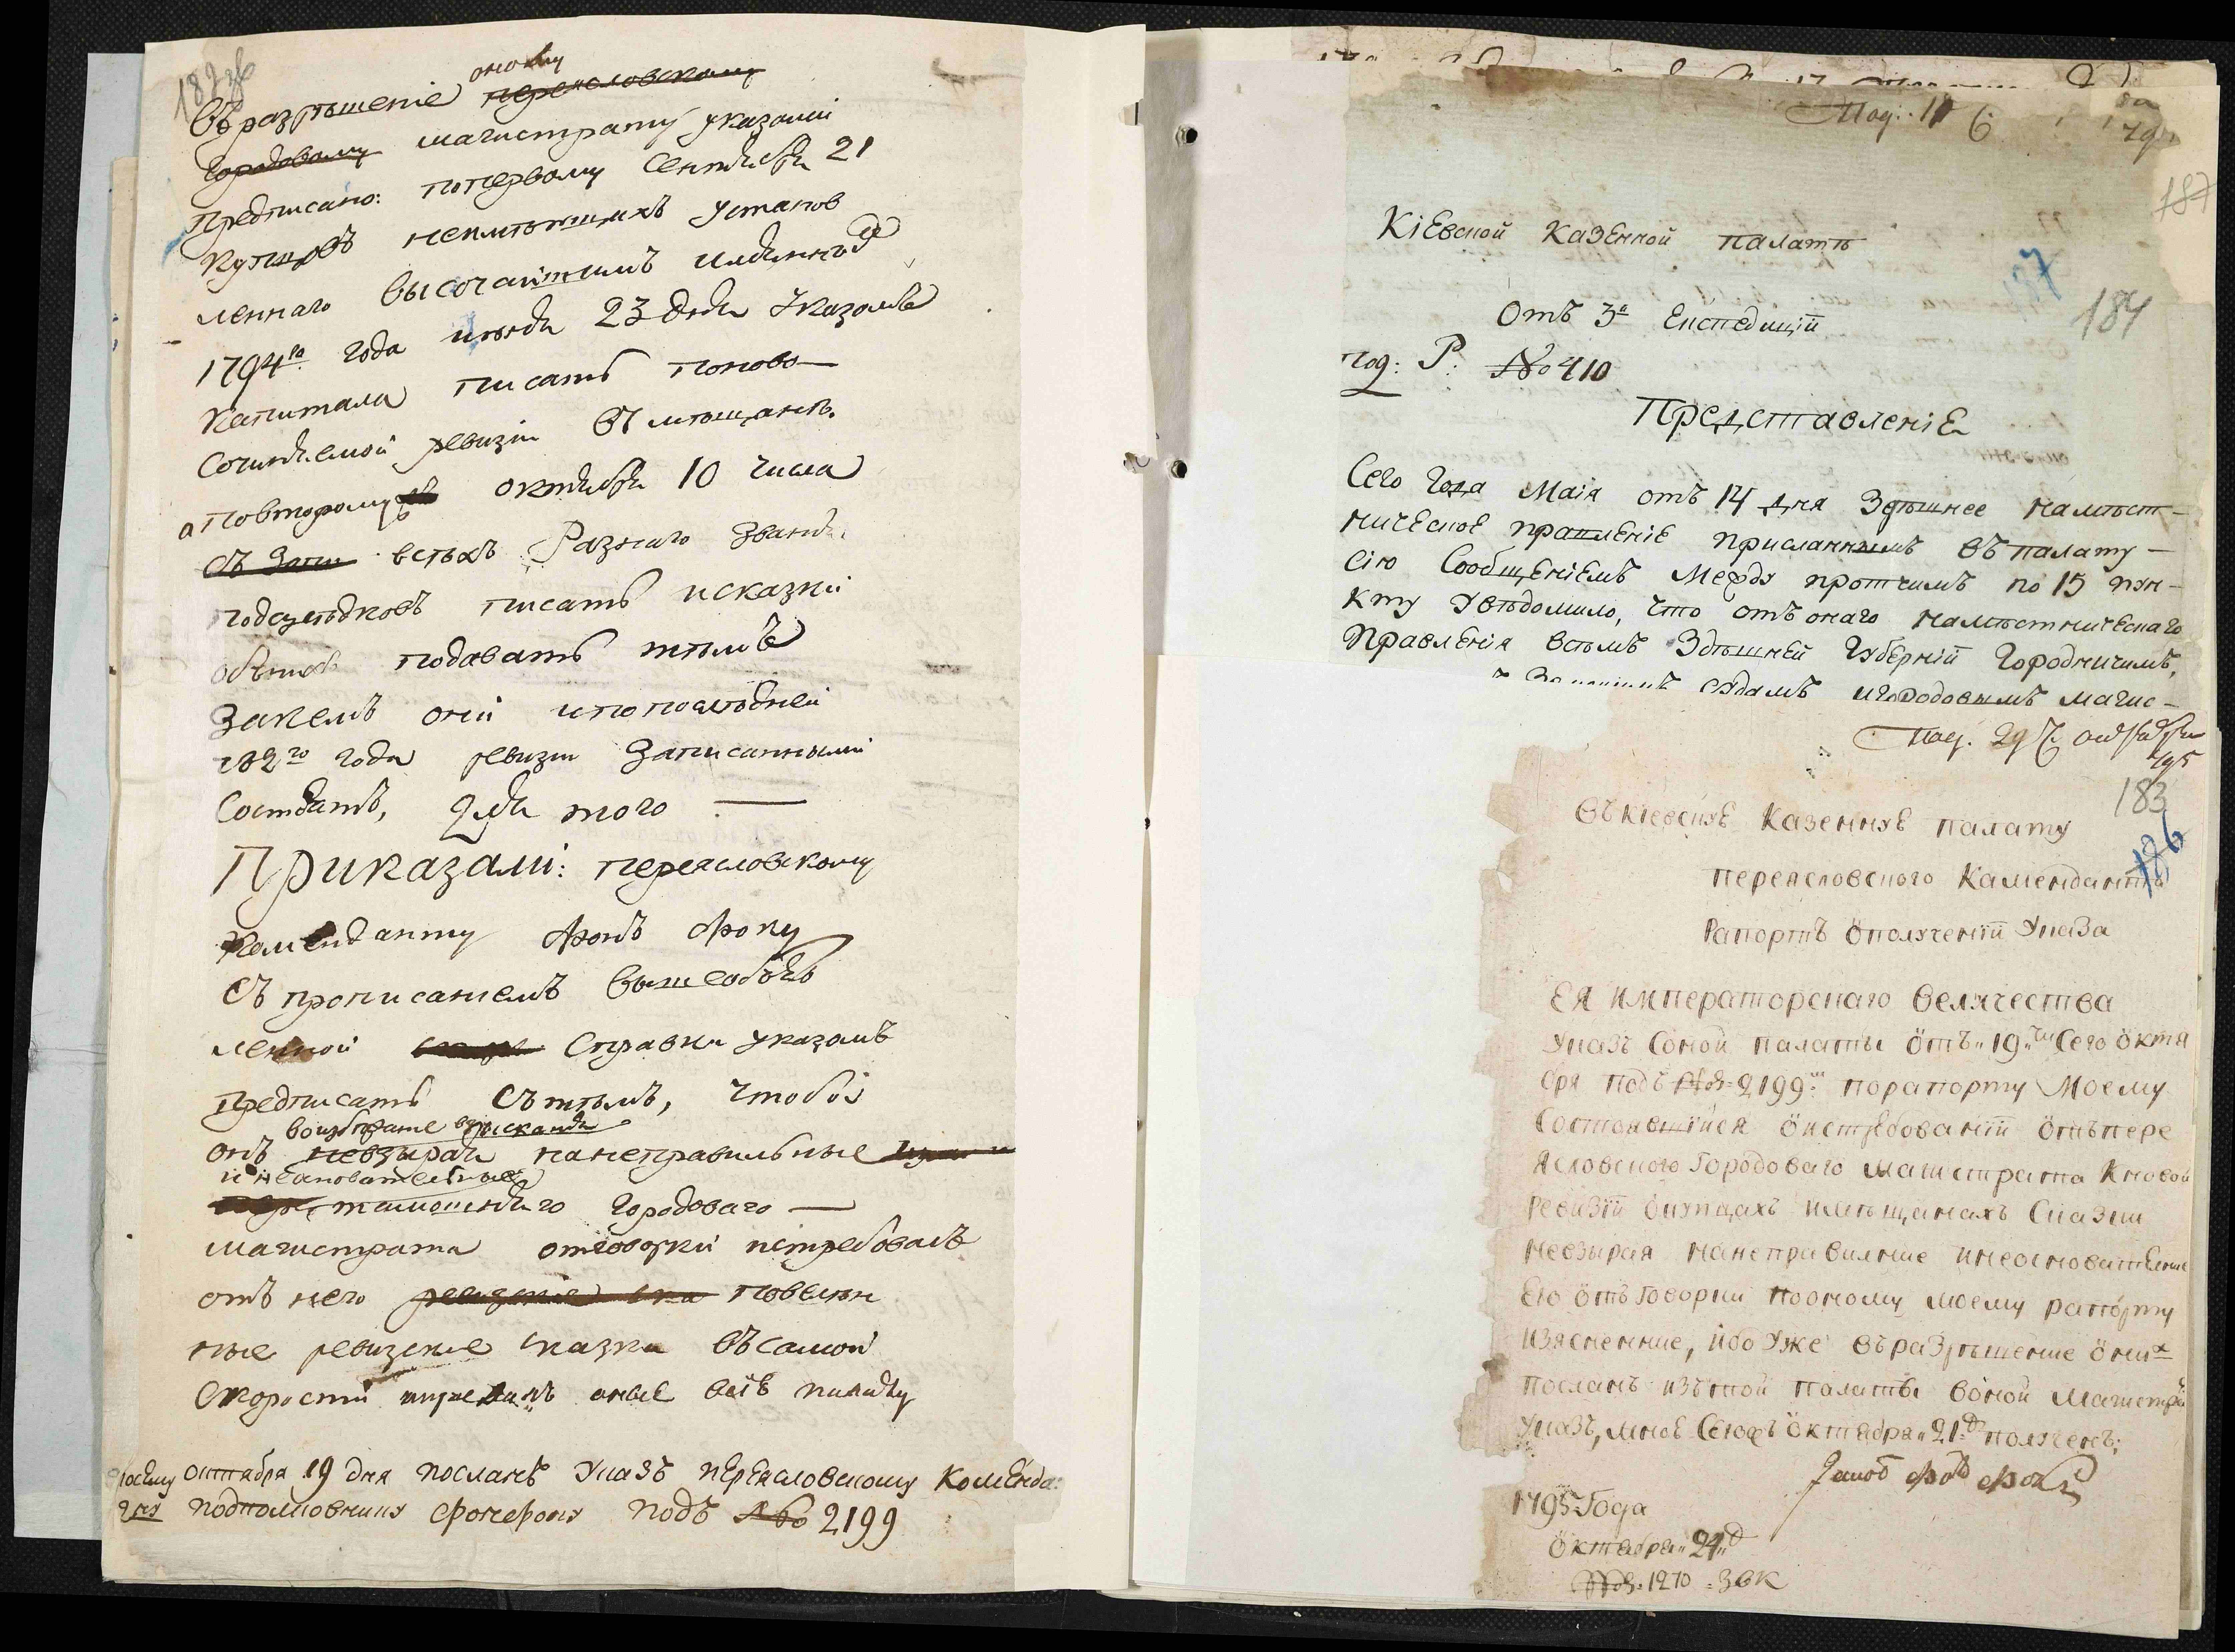 182 зв
въ разрѣшеніе переясловскому оному
городовому магистрату указами
предписано: поперваму Сентября 21
купцовъ неимѣющихъ установ
леннаго высочайшимъ имяннымъ
1794го года июня 23 дня Указомъ
капитала писать поново
сочиняемой ревизіи въ мѣщанѣ.
а повторому октября 10 числа
всѣхъ Разнаго званія
подсусѣдковъ писать исказки
объ нихъ подавать тѣмъ
Закемъ они ипопослѣдней
782го года ревизіи Записанными
Состоятъ, Для того
Приказали: переясловскому
коменданту фонъ фоку
съ прописаніемъ вышеобъяв
ленной Справки указомъ
предписать Сътѣмъ, чтобы
воизбѣжаніе взысканія
онъ невзирая нанеправильные
инеановательные
тамошняго городоваго
магистрата отговорки истребовалъ
отъ него повелѣн
ные ревизские сказки въсамой
скорости оные всіѣ палату
посему октября 19 дня посланъ Указъ переясловскому коменда:
подполковнику фонфоку подъ №о 2199
Пол: 11
187
Кіевской казенной палатѣ
137
Отъ 3й Експедиціи
184
пол: Р: №о 410
Представленіе
Сего года Маія отъ 14 дня Здѣшнее намѣст-
ническое правленіе присланнымъ въ палату
сію Сообщеніемъ Между протчимъ по 15 пун-
кту Увѣдомило, что отъ онаго намѣстническаго
Правленія всѣмъ Здѣшней Губерніи Городничимъ,
судамъ игородовымъ магис-
Пол. 29 октября
795
183
въ кіевскую казенную палату
186
переясловского каменданта
Рапортъ ополученіи Указа
ЕЯ императорскаго величества
Указъ Соной палаты отъ 19 Сего октя
бря подъ №о 2199м порапорту Моему
Состоявшійся оистребованіи отъпере
ясловского Городоваго магистрата Кновой
Ревизіи окупцахъ имѣщанахъ Сказки
невзырая нанеправилние инеоснователние
Его отъговорки поономy моему рапорту
изясненние, ибо уже въразрѣшение оних
посланъ изътой палаты воной магистра
Указъ, мною Сегожъ октября 21 д полученъ;
Яковъ фонъ фокъ
1795 Года
октября 24 д
№ 1270